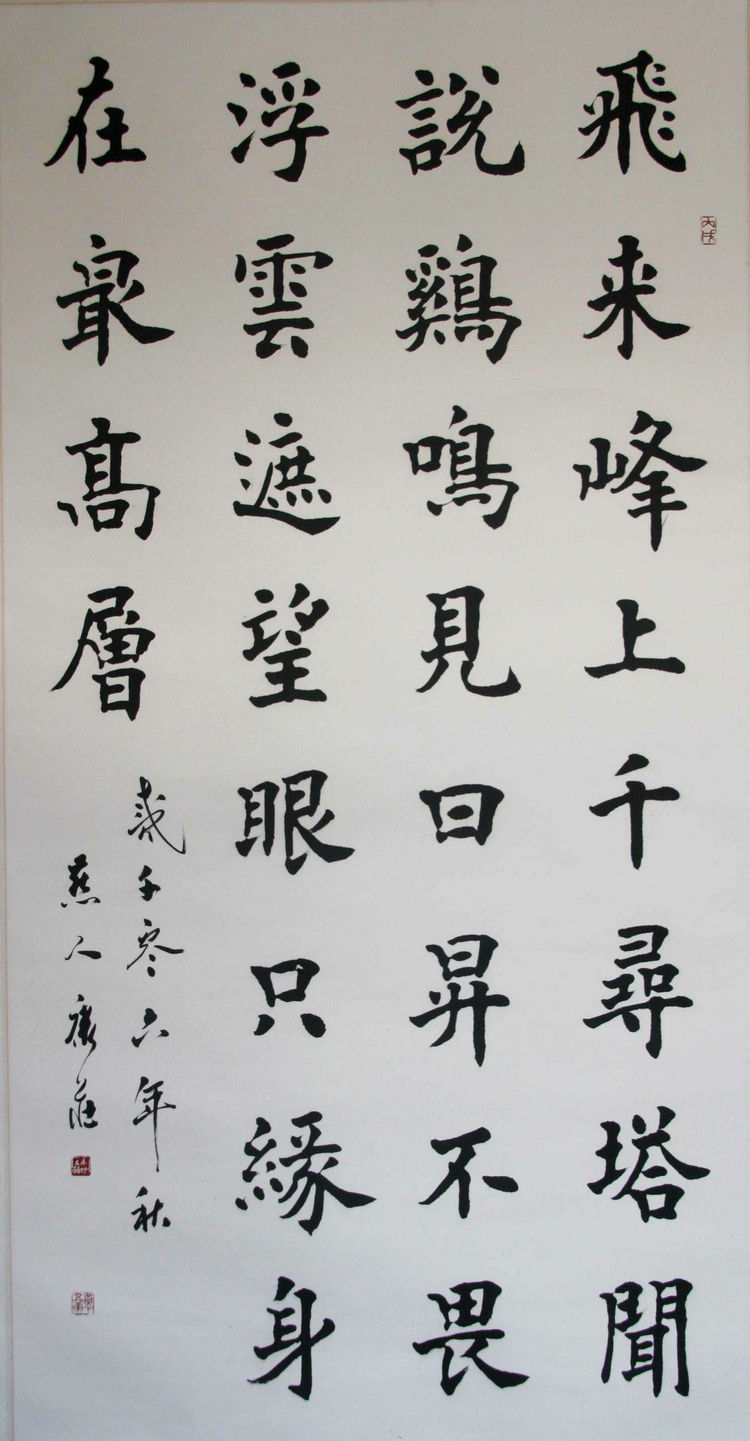 飛来峰上千尋塔聞
說鷄鳴見日昇不畏
浮雲遮望眼只緣身
在最高層
貳千零六年秋
燕人康莊
丙戌